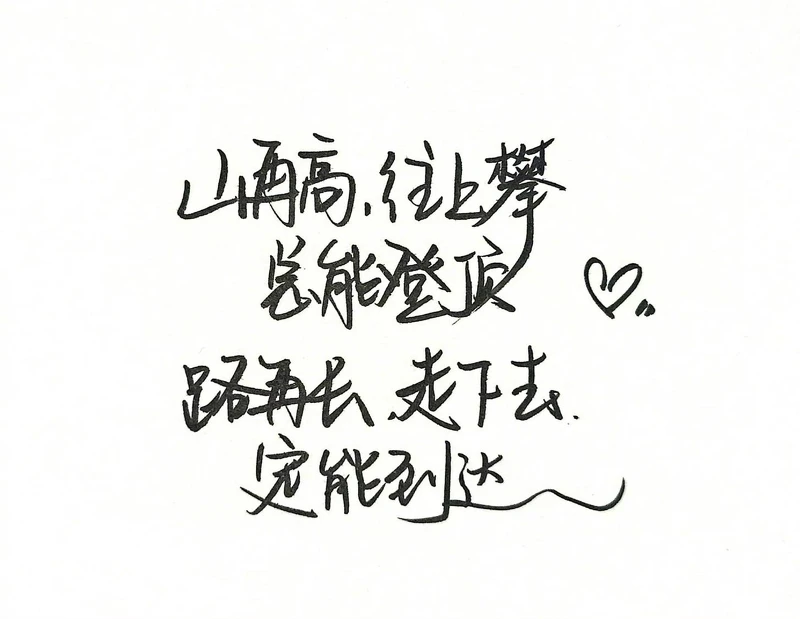 山再高,往上攀
总能登顶
路再长 走下去.
定能到达